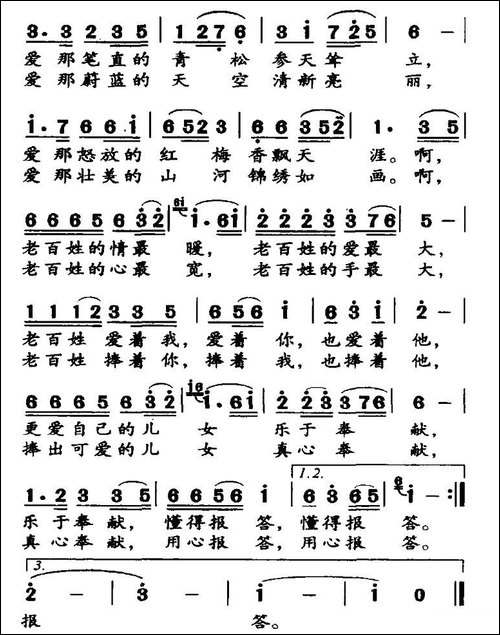 3. 3 2 3 5 | 1 2 7 6 | 3 i 7 2 5 | 6 – |
爱 那 笔 直 的 青 松 参 天 耸 立,
爱 那 蔚 蓝 的 天 空 清 新 亮 丽,
i. 7 6 6 i | 6 5 2 3 | 6 6 3 5 2 | 1. 3 5 |
爱 那 怒 放 的 红 梅 香 飘 天 涯。 啊,
爱 那 壮 美 的 山 河 锦 绣 如 画。 啊,
6 6 6 5 6 3 2 | 6i i. 6 i | 2 2 2 3 3 7 6 | 5 – |
老 百 姓 的 情 最 暖, 老 百 姓 的 爱 最 大,
老 百 姓 的 心 最 宽, 老 百 姓 的 手 最 大,
1 1 1 2 3 3 5 | 6 5 6 i | 6 3 i | 2 – |
老 百 姓 爱 着 我, 爱 着 你, 也 爱 着 他,
老 百 姓 捧 着 你, 捧 着 我, 也 捧 着 他,
6 6 6 5 6 3 2 | i6 i. 6 i | 2 2 3 3 7 6 | 6 – |
更 爱 自 己 的 儿 女 乐 于 奉 献,
捧 出 可 爱 的 儿 女 真 心 奉 献,
1.2.
1. 2 3 3 5 | 6 6 5 6 i | 6 3 6 5 | 6 i – :||
乐 于 奉 献, 懂 得 报 答, 懂 得 报 答。
真 心 奉 献, 用 心 报 答, 用 心 报 答。
3.
2 – 3 – | i – i 0 ||
报 答。